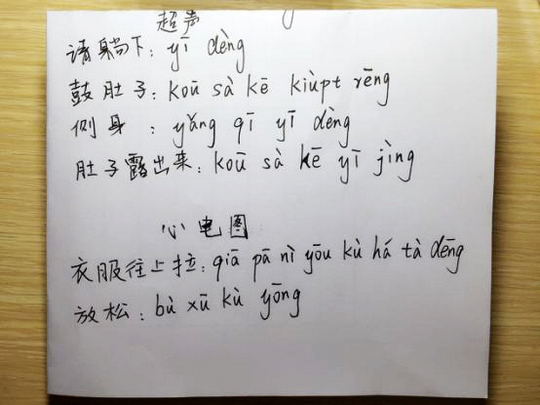 超声
请躺下：yī dèng
鼓肚子：koū sà kē kiùpt rēng
侧身：yǎng qī yī dèng
肚子露出来：koū sà kē yī jìng
心电图
衣服往上拉：qiā pā nì yōu kù há tà dēng
放松：bù xū kù yōng